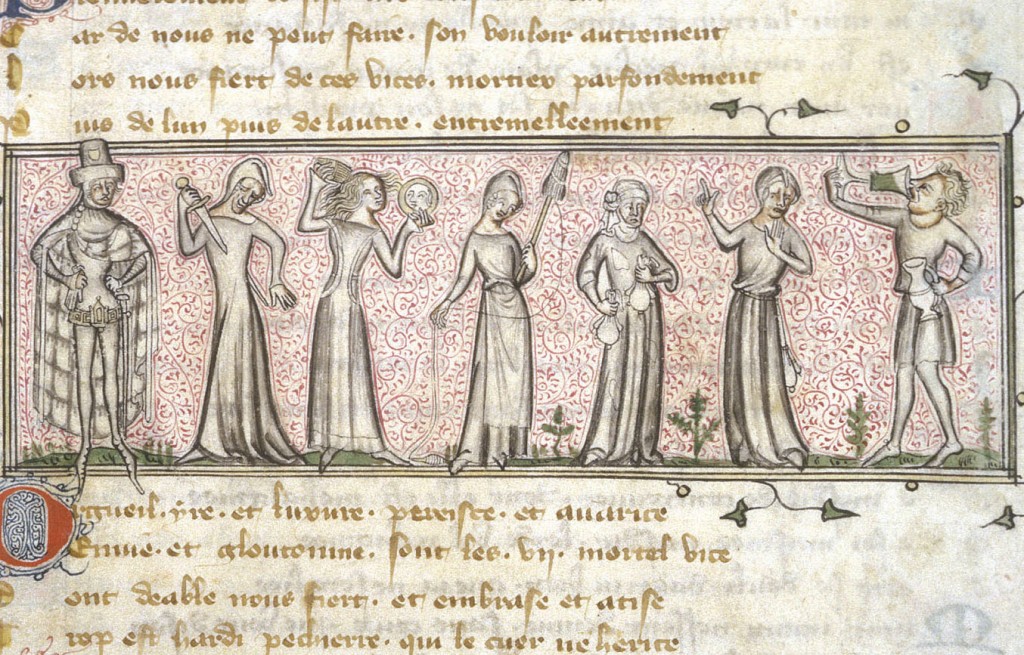 ar de nous ne peut faire. son vouloir autrement
ors nous fiert de ces vices. mortiex parfondement
uis de lun puis de lautre. entremelleement
Orgueil. yre. et luxure. peresce. et auarice
Enuie. et gloutonnie. sont les. vij. mortel vice
ont deable nous fiert. et embrase et atise
rop est hardi pecherre. qui le cuer ne herice